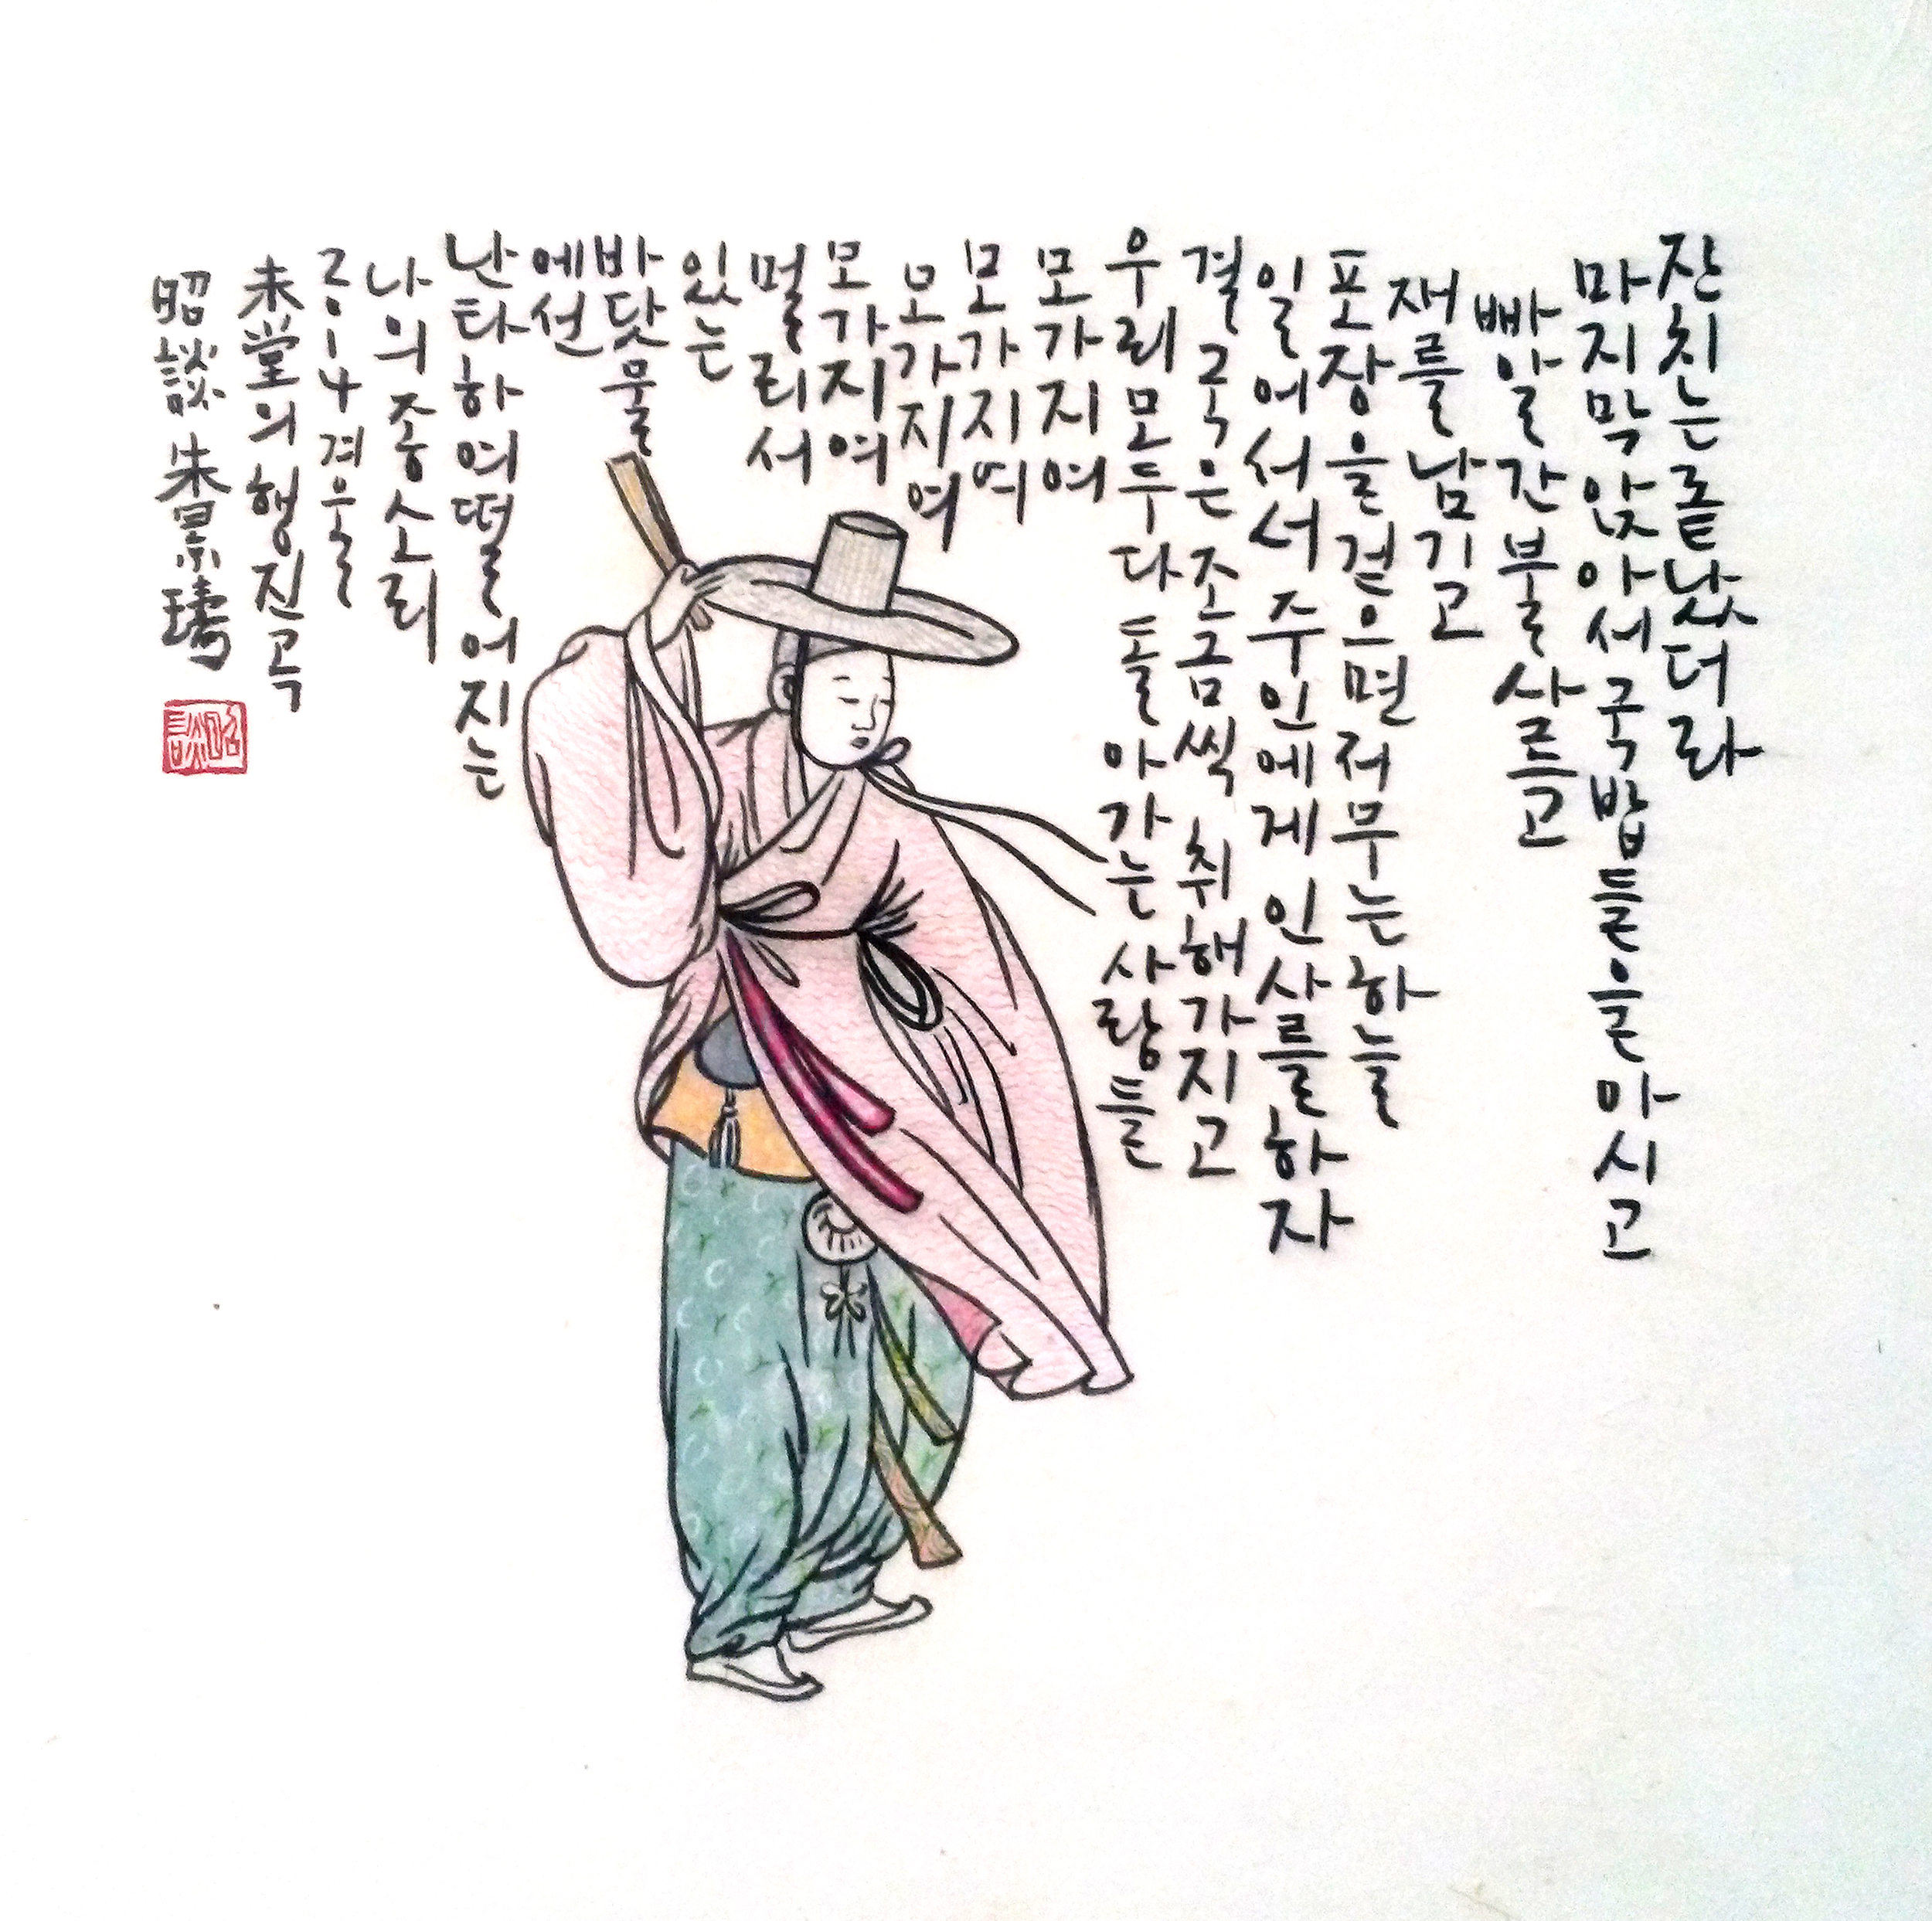 잔치는 끝났더라
마지막 앉아서 국밥들을 마시고
빠알간 불 사르고
재를 남기고
포장을 걷으면 저무는 하늘
일어서서 주인에게 인사를 하자
결국은 조금씩 취해가지고
우리 모두 다 돌아가는 사람들
모가지여
모가지여
모가지여
모가지여
멀리서
있는
바닷물
에선
난타하여 떨어지는
나의 종소리
2014 겨울
未堂의 행진곡
昭談 朱景璹